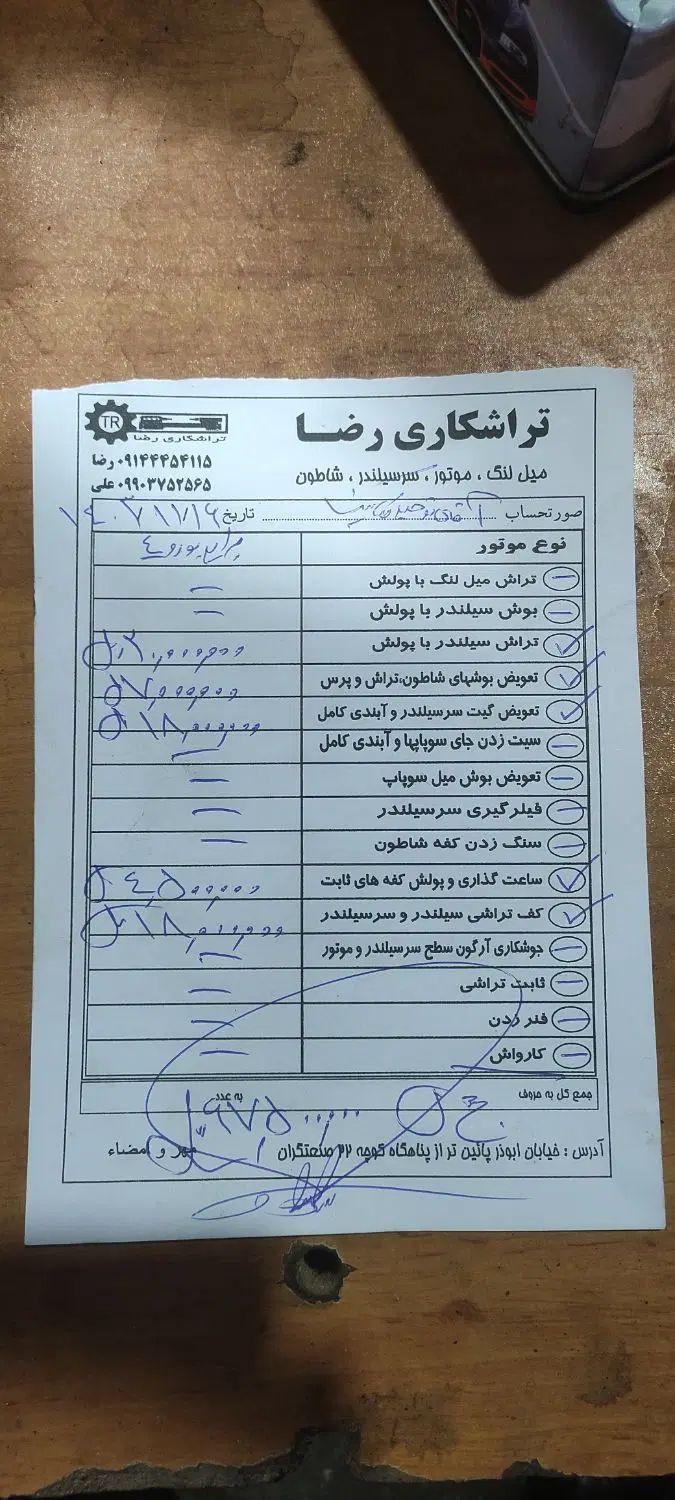 تراشکاری رضا
TR
تراشکاری رضا
میل لنگ ، موتور ، سرسیلندر ، شاطون
۰۹۱۴۴۴۵۴۱۱۵ رضا
۰۹۹۰۳۷۵۲۵۶۵ علی
صورتحساب آقای تاریخ ۱۴۰۳/۱۱/۱۶
نوع موتور پراید یورو ۴
تراش میل لنگ با پولش —
بوش سیلندر با پولش —
تراش سیلندر با پولش
تعویض بوشهای شاطون،تراش و پرس ۷,۰۰۰,۰۰۰
تعویض گیت سرسیلندر و آبندی کامل ۱۸,۰۰۰,۰۰۰
سیت زدن جای سوپاپها و آبندی کامل —
تعویض بوش میل سوپاپ —
فیلرگیری سرسیلندر —
سنگ زدن کفه شاطون —
ساعت گذاری و پولش کفه های ثابت ۴,۵۰۰,۰۰۰
کف تراشی سیلندر و سرسیلندر ۱۸,۰۰۰,۰۰۰
جوشکاری آرگون سطح سرسیلندر و موتور —
ثابت تراشی —
فنر زدن —
کارواش —
جمع کل به حروف به عدد
آدرس : خیابان ابوذر پائین تر از پناهگاه کوچه ۲۲ صنعتگران مهر و امضاء